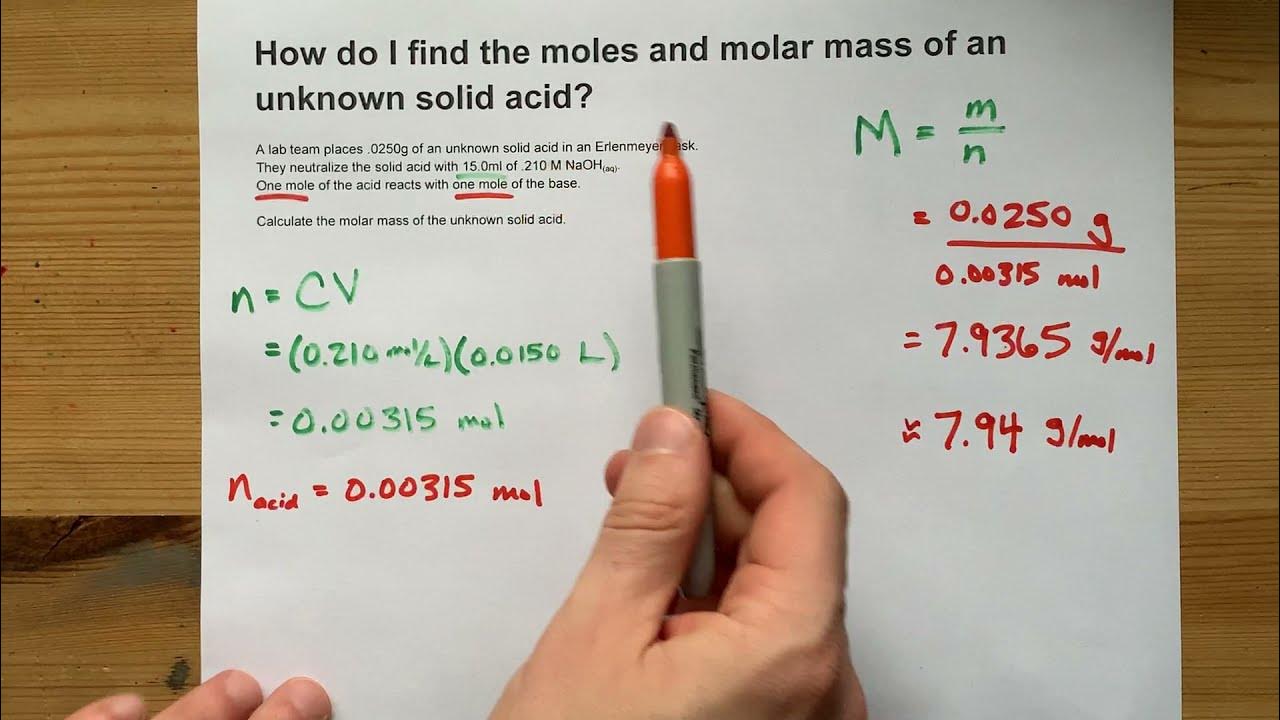 How do I find the moles and molar mass of an
unknown solid acid?
A lab team places .0250g of an unknown solid acid in an Erlenmeyer ask.
They neutralize the solid acid with 15.0ml of .210 M NaOH(aq).
One mole of the acid reacts with one mole of the base.
Calculate the molar mass of the unknown solid acid.
n = CV
= (0.210 mol/L)(0.0150 L)
= 0.00315 mol
nacid = 0.00315 mol
M = m/n
= 0.0250 g
0.00315 mol
= 7.9365 g/mol
≈ 7.94 g/mol